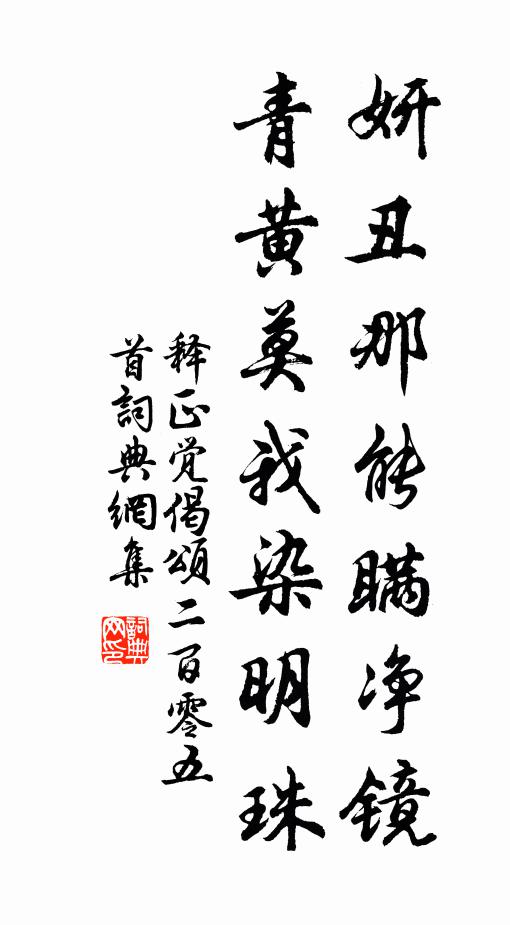 妍丑那能瞒净镜
青黄莫我染明珠
释正觉偈颂二百零五
首詞典網集
詞典网印